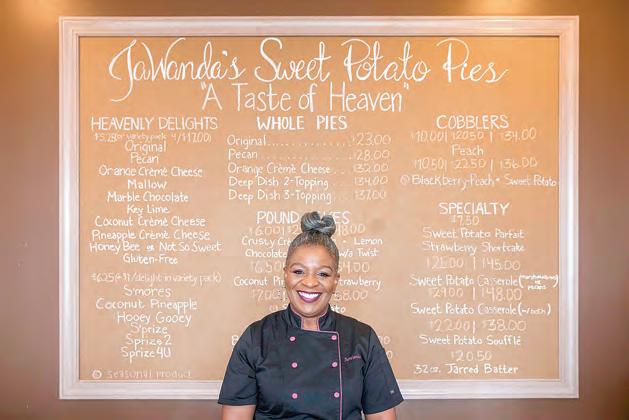 JaWanda's Sweet Potato Pies
"A Taste of Heaven"
HEAVENLY DELIGHTS
$5.25 (or variety pack 4/$17.00)
Original
Pecan
Orange Crème Cheese
Mallow
Marble Chocolate
Key Lime
Coconut Crème Cheese
Pineapple Crème Cheese
Honey Bee or Not So Sweet
Gluten-Free
$6.25 (+$1/delight in variety pack)
S'mores
Coconut Pineapple
Hooey Gooey
S'prize
Sprize 2
Sprize 4U
© seasonal product
WHOLE PIES
Original 23.00
Pecan 28.00
Orange Crème Cheese 32.00
Deep Dish 2-Topping 34.00
Deep Dish 3-Topping 37.00
POUND
Lemon
w/a Twist
Coconut
COBBLERS
$10.00 | $20.50 | $34.00
Peach
$10.50 | $22.50 | $36.00
© Blackberry-Peach • Sweet Potato
SPECIALTY
$7.50
Sweet Potato Parfait
Strawberry Shortcake
$25.00 | $45.00
Sweet Potato Casserole
$29.00 | $48.00
Sweet Potato Casserole (w/both)
$22.00 | $38.00
Sweet Potato Soufflé
$20.50
32oz. Jarred Batter